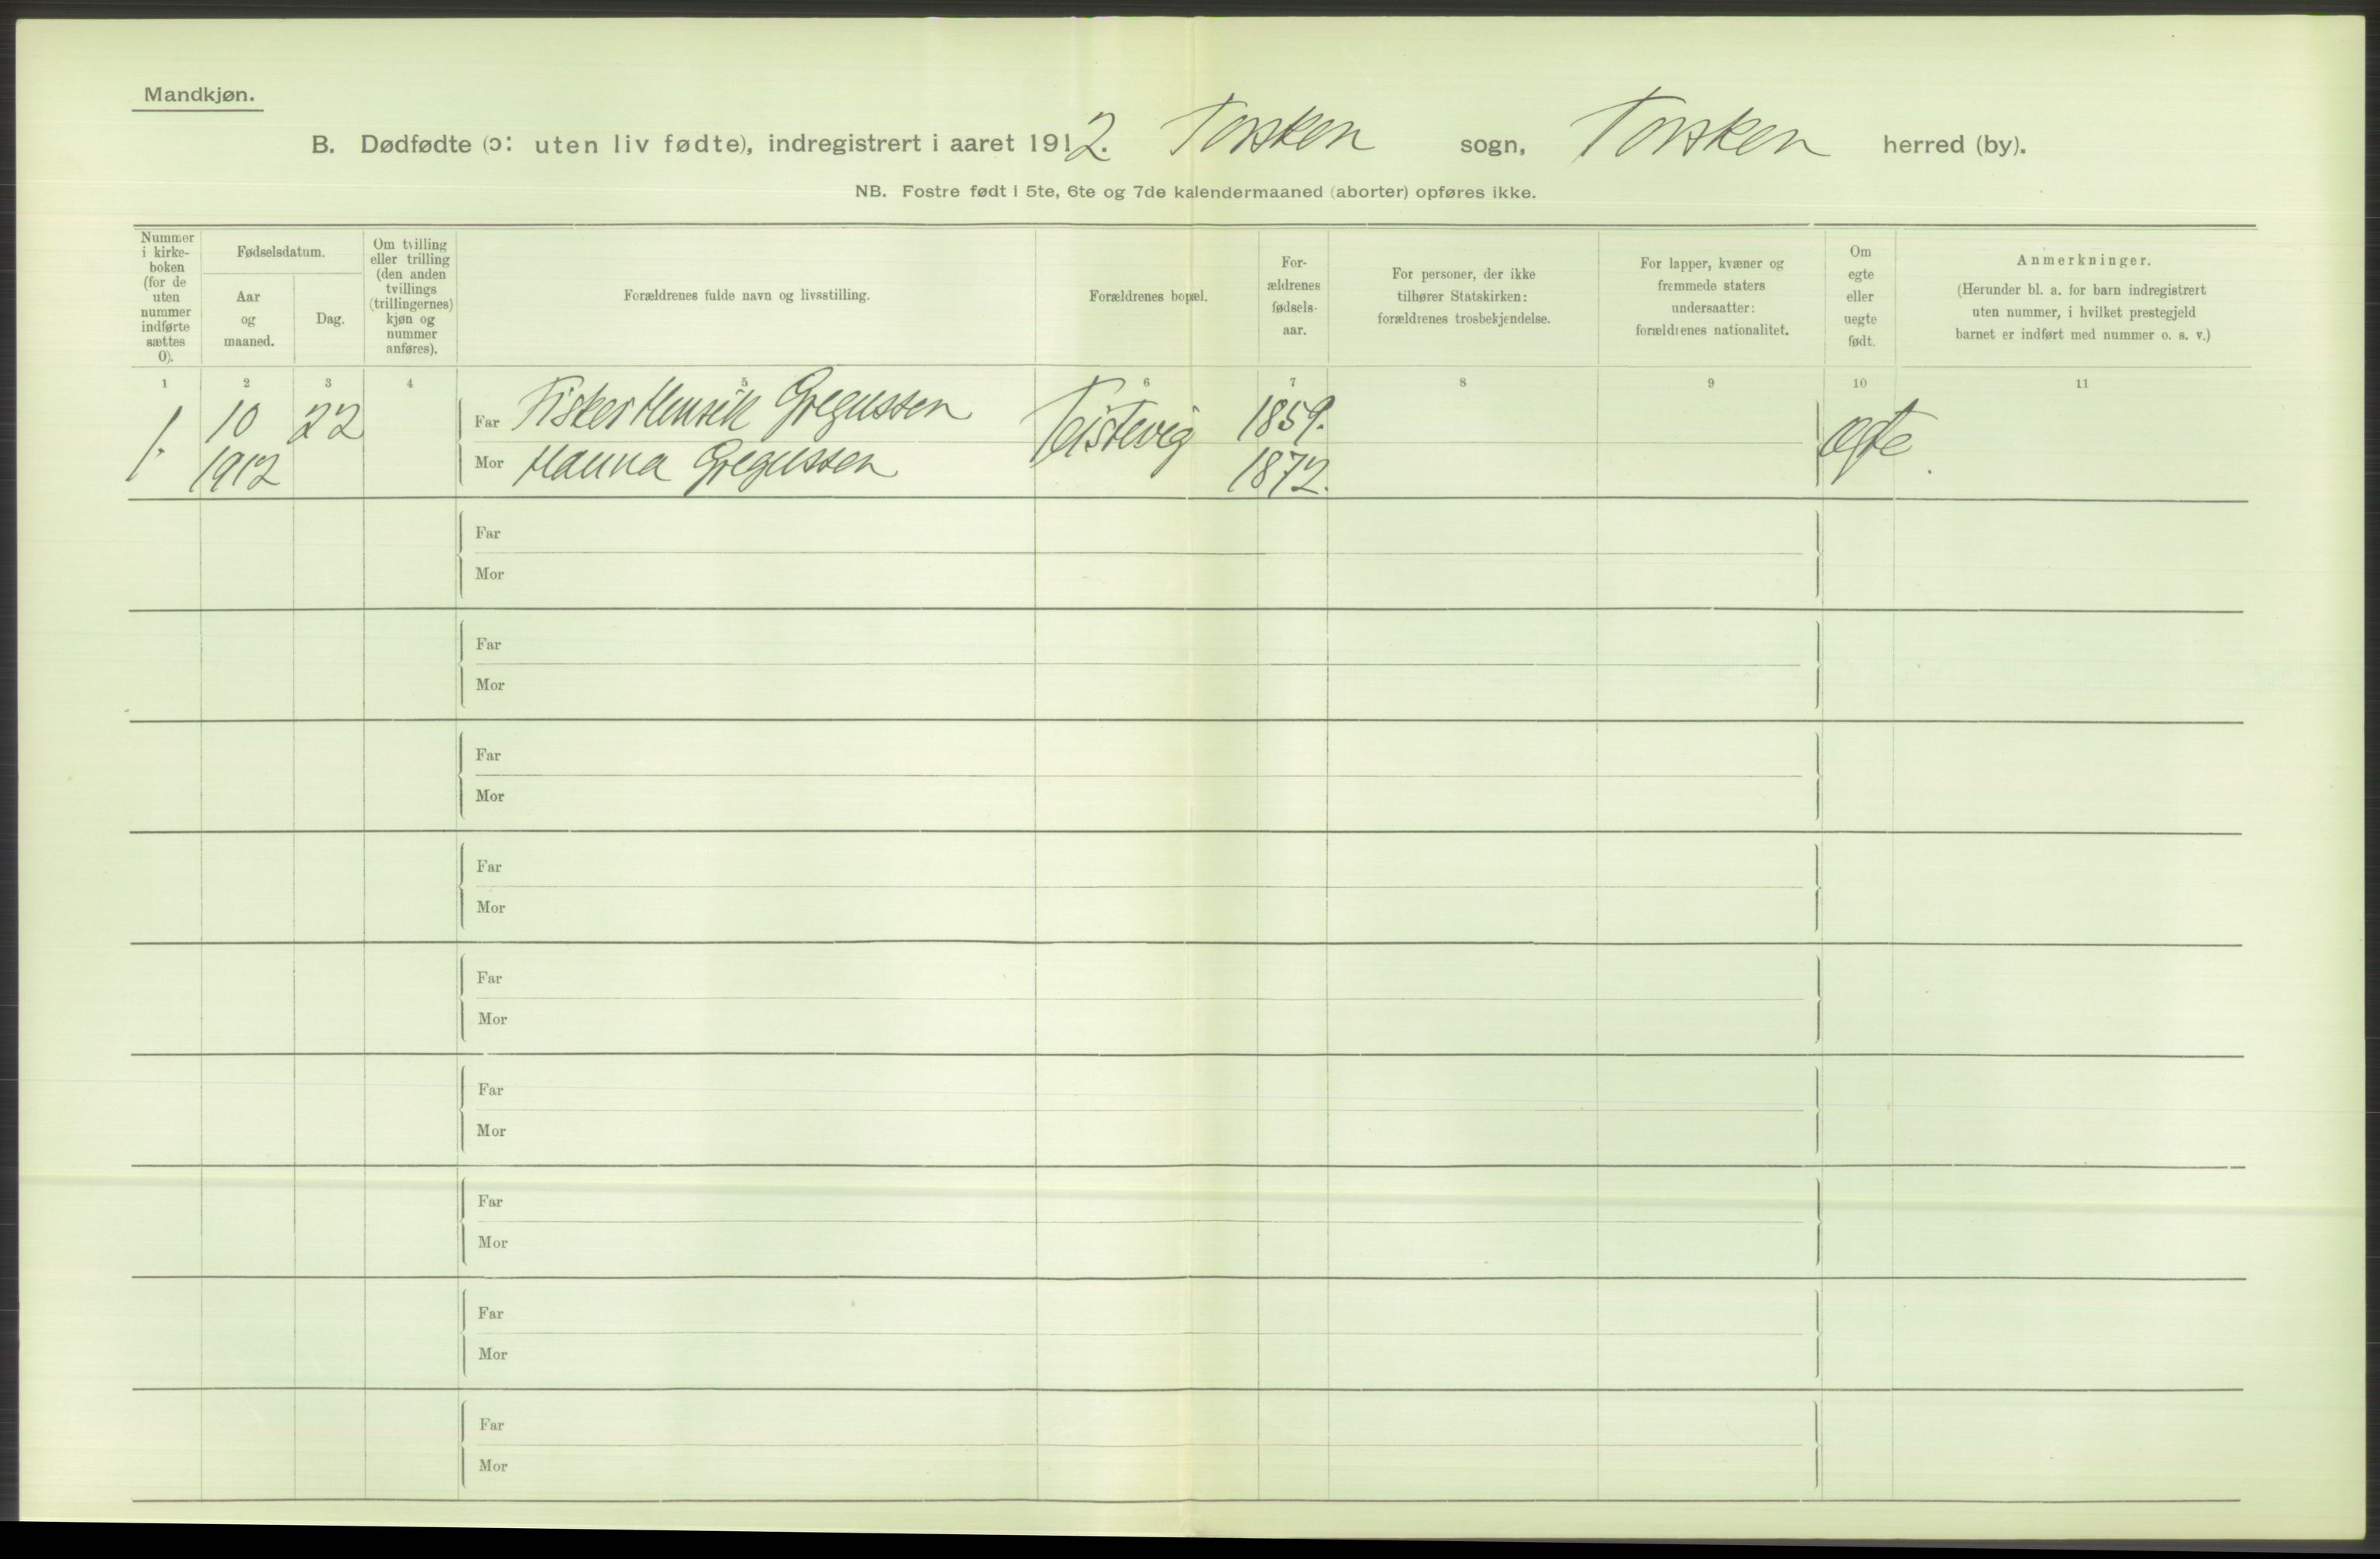 Mandkjøn.
B. Dødfødte (ɔ: uten liv fødte), indregistrert i aaret 1912. Torsken sogn, Torsken herred (by).
NB. Fostre født i 5te, 6te og 7de kalendermaaned (aborter) opføres ikke.
Nummer
i kirke-
boken
(for de
uten
nummer
indførte
sættes
0).
Fødselsdatum.
Aar
og
maaned.
Dag.
Om tvilling
eller trilling
(den anden
tvillings
(trillingernes)
kjøn og
nummer
anføres).
Forældrenes fulde navn og livsstilling.
Forældrenes bopæl.
For-
ældrenes
fødsels-
aar.
For personer, der ikke
tilhører Statskirken:
forældrenes trosbekjendelse.
For lapper, kvæner og
fremmede staters
undersaatter:
forældrenes nationalitet.
Om
egte
eller
uegte
født.
Anmerkninger.
(Herunder bl. a. for barn indregistrert
uten nummer, i hvilket prestegjeld
barnet er indført med nummer o. s. v.)
1 2 3 4 5 6 7 8 9 10 11
1. 10 22 Far Fisker Henrik Gregussen Teistevig 1859. ægte.
1912 Mor Hanna Gregussen 1872.
Far
Mor
Far
Mor
Far
Mor
Far
Mor
Far
Mor
Far
Mor
Far
Mor
Far
Mor
Far
Mor